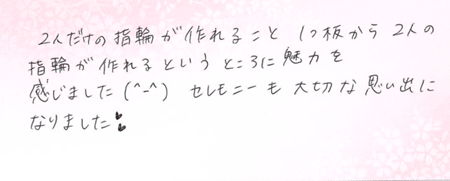 2人だけの指輪が作れること 1つ板から2人の
指輪が作れるというところに魅力を
感じました(^-^) セレモニーも大切な思い出に
なりました❣